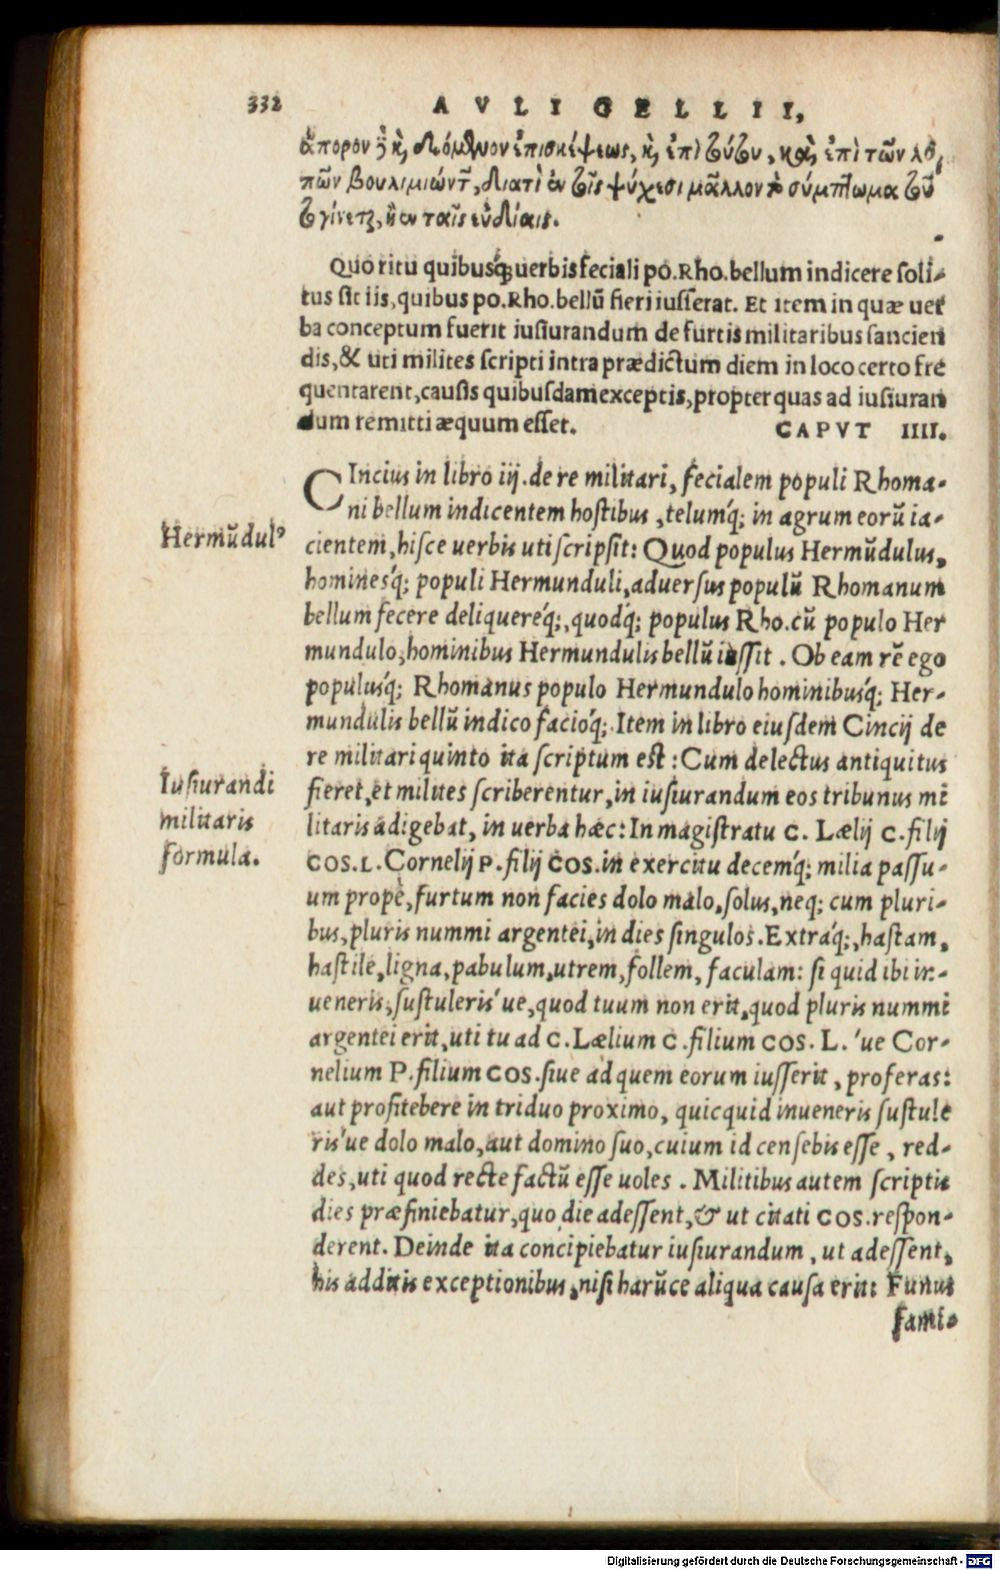 332 AVLI GELLII,
ἄπορον ἢ κὶ δεόμενον ἐπισκέψεως, κὶ ἐπὶ τούτου, καὶ ἐπὶ τῶν λοι
πῶν βουλιμιώντων, διατὶ ἐν τοῖς ψύχεσι μᾶλλον τὸ σύμπτωμα τοῦ
το γίνεται, ἢ ἐν ταῖς εὐδίαις.
Quo ritu quibusq́; uerbis feciali po. Rho. bellum indicere soli-
tus sit iis, quibus po. Rho. bellũ fieri iusserat. Et item in quæ uer
ba conceptum fuerit iusiurandum de furtis militaribus sancien
dis, & uti milites scripti intra prædictum diem in loco certo fre
quentarent, causis quibusdam exceptis, propter quas ad iusiuran
dum remitti æquum esset. CAPVT IIII.
CIncius in libro iij. de re militari, fecialem populi Rhoma-
ni bellum indicentem hostibus, telumq́; in agrum eorũ ia-
Hermũdulꝰ
cientem, hisce uerbis uti scripsit: Quod populus Hermũdulus,
hominesq́; populi Hermunduli, aduersus populũ Rhomanum
bellum fecere deliquereq́;, quodq́; populus Rho. cũ populo Her
mundulo, hominibus Hermundulis bellũ iussit. Ob eam rẽ ego
populusq́; Rhomanus populo Hermundulo hominibusq́; Her-
mundulis bellũ indico facioq́;. Item in libro eiusdem Cincij de
re militari quinto ita scriptum est: Cum delectus antiquitus
Iusiurandi
militaris
formula.
fieret, et milites scriberentur, in iusiurandum eos tribunus mi
litaris adigebat, in uerba hæc: In magistratu C. Lælij C. filij
COS. L. Cornelij P. filij COS. in exercitu decemq́; milia passu-
um propè, furtum non facies dolo malo, solus, neq; cum pluri-
bus, pluris nummi argentei, in dies singulos. Extráq́;, hastam,
hastile, ligna, pabulum, utrem, follem, faculam: si quid ibi in-
ueneris, sustuleris'ue, quod tuum non erit, quod pluris nummi
argentei erit, uti tu ad C. Lælium C. filium COS. L.'ue Cor-
nelium P. filium COS. siue ad quem eorum iusserit, proferas:
aut profitebere in triduo proximo, quicquid inueneris sustule
ris'ue dolo malo, aut domino suo, cuium id censebis esse, red-
des, uti quod recte factũ esse uoles. Militibus autem scriptis
dies præfiniebatur, quo die adessent, & ut citati COS. respon-
derent. Deinde ita concipiebatur iusiurandum, ut adessent,
his additis exceptionibus, nisi harũce aliqua causa erit: Funus
fami-
Digitalisierung gefördert durch die Deutsche Forschungsgemeinschaft - DFG